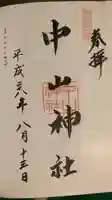 奉拝
中山神社
平成二八年八月十三日